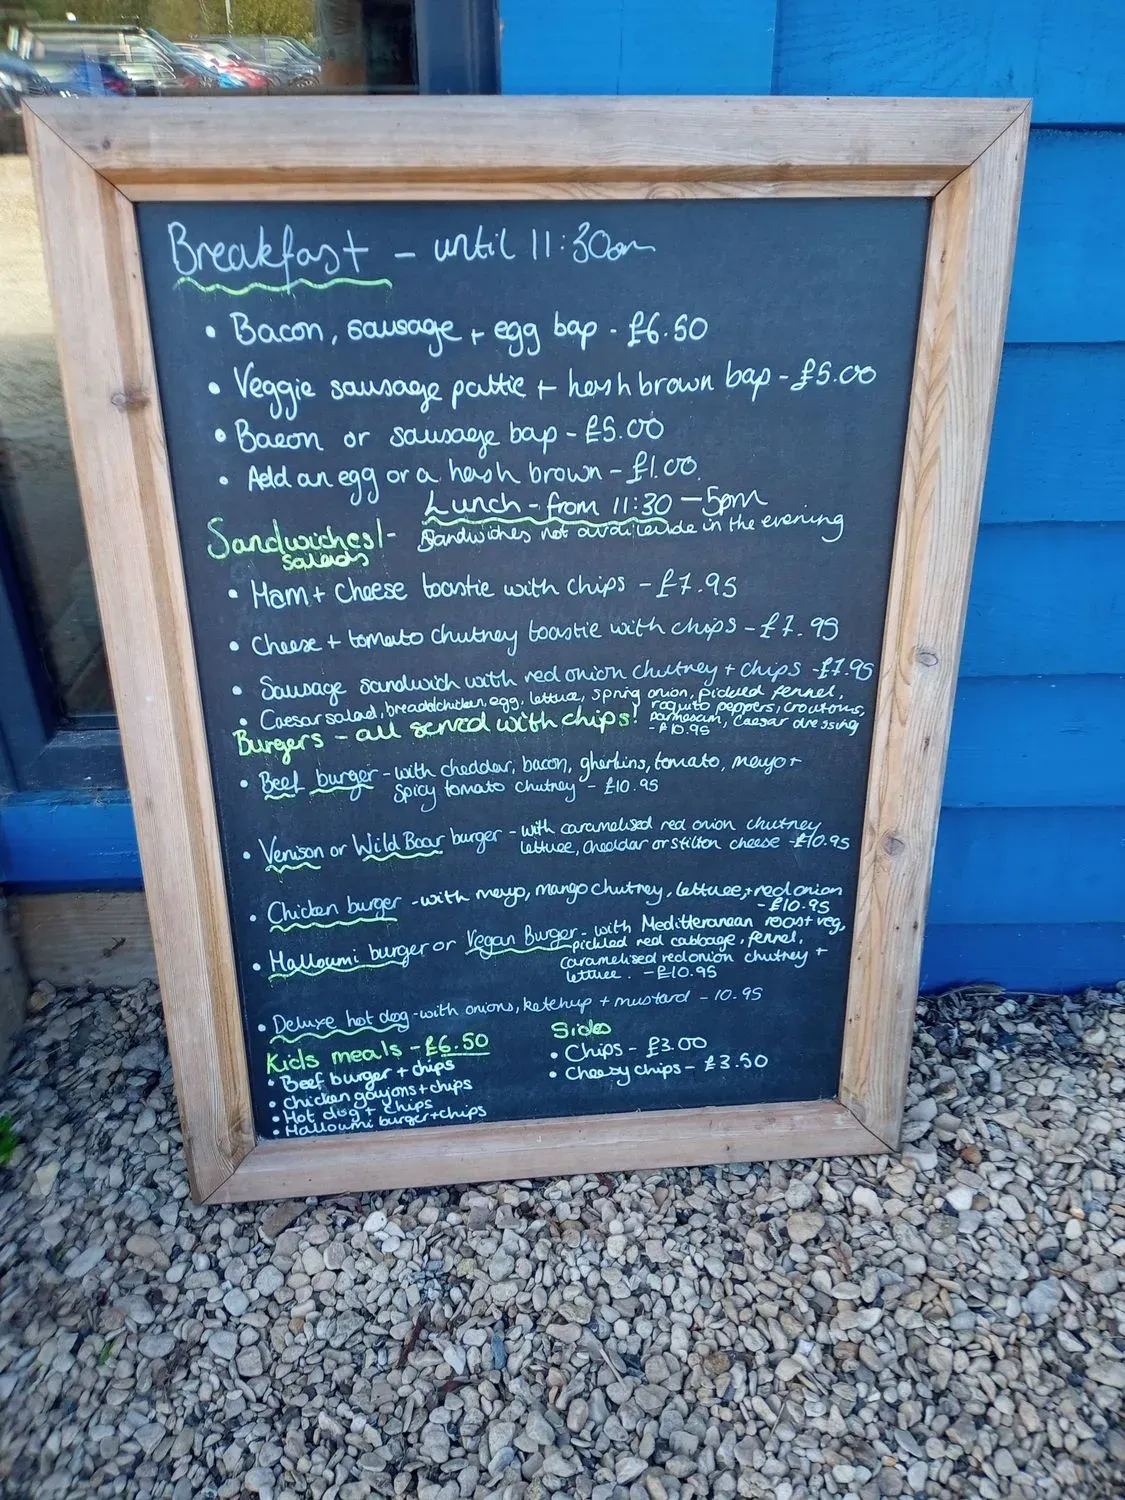 Breakfast - until 11:30am
• Bacon, sausage + egg bap - £6.50
• Veggie sausage pattie + hash brown bap - £5.00
• Bacon or sausage bap - £5.00
• Add an egg or a hash brown - £1.00
Lunch - from 11:30 - 5pm
Sandwiches/ - Sandwiches not available in the evening
salads
• Ham + Cheese toastie with chips - £7.95
• Cheese + tomato chutney toastie with chips - £7.95
• Sausage sandwich with red onion chutney + chips - £7.95
• Caesar salad, breadedchicken, egg, lettuce, spring onion, pickled fennel,
roquito peppers, croutons,
parmesan, Caesar dressing
- £10.95
Burgers - all served with chips!
• Beef burger - with cheddar, bacon, gherkins, tomato, mayo +
spicy tomato chutney - £10.95
• Venison or Wild Boar burger - with caramelised red onion chutney
lettuce, cheddar or stilton cheese - £10.95
• Chicken burger - with mayo, mango chutney, lettuce + red onion
- £10.95
• Halloumi burger or Vegan Burger - with Mediterranean roast veg,
pickled red cabbage, fennel,
caramelised red onion chutney +
lettuce. - £10.95
• Deluxe hot dog - with onions, ketchup + mustard - 10.95
Kids meals - £6.50
• Beef burger + chips
• Chicken goujons + chips
• Hot dog + chips
• Halloumi burger + chips
Sides
• Chips - £3.00
• Cheesy chips - £3.50